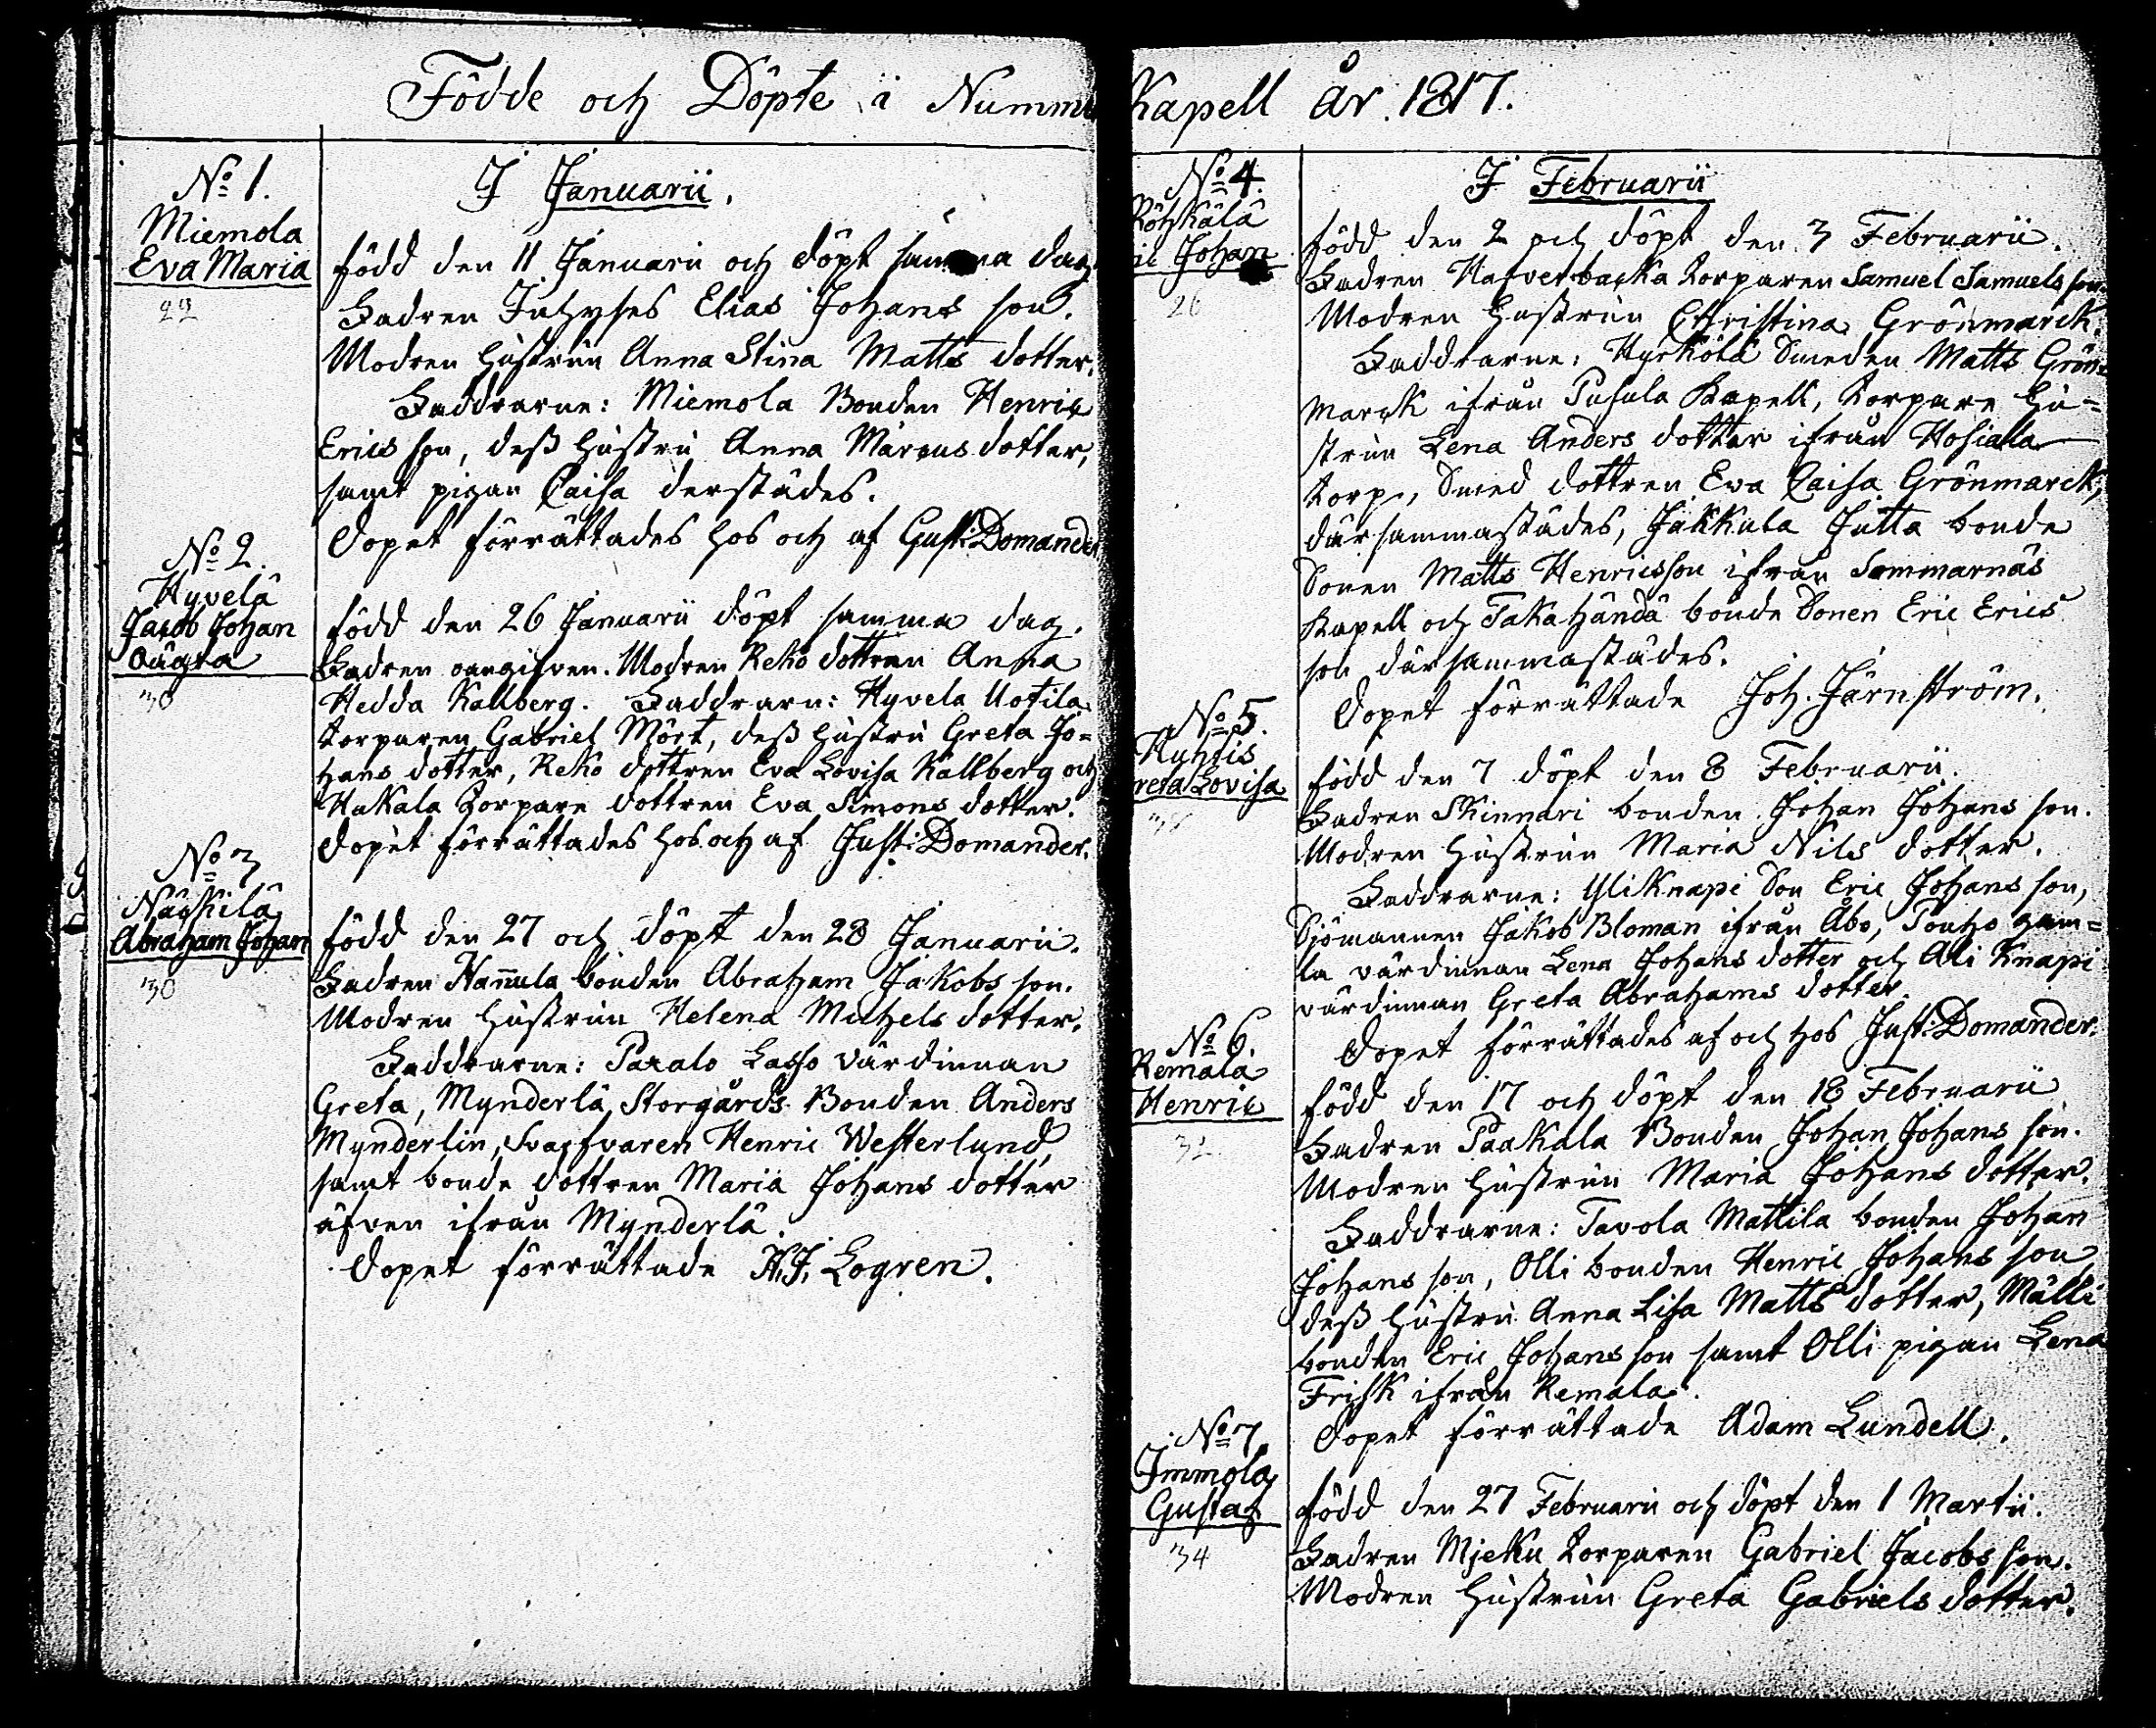 Födde och Döpte i Nummi Kapell År 1817.
No 1.
Miemola
Eva Maria
22
I Januarii.
född den 11 Januarii och döpt samma dag.
Fadren Inhyses Elias Johans son.
Modren hustrun Anna Stina Matts dotter.
Faddrarne: Miemola Bonden Henric
Erics son, dess hustru Anna Marcus dotter,
samt pigan Caisa derstädes.
Dopet förrättades hos och af Gust: Domander
No 2.
Hyvelä
Jacob Johan
oägta
30
född den 26 Januarii döpt samma dag.
Fadren oangifven. Modren Rekö dottren Anna
Hedda Kallberg. Faddrarn: Hyvela Uotila
Torparen Gabriel Mört, dess hustru Greta Jo=
hans dotter, Rekö dottren Eva Lovisa Källberg och
Hakala Torpare dottren Eva Simons dotter.
Dopet förrättades hos och af Just: Domander.
No 3
Näckilä
Abraham Johan
30
född den 27 och döpt den 28 Januarii.
Fadren Hannula bonden Abraham Jakobs son.
Modren hustrun Helena Michels dotter.
Faddrarne: Paxalo Lasso värdinnan
Greta, Mynderlä Storgårds Bonden Anders
Mynderlin, Svarfvaren Henric Westerlund,
samt bonde dottren Maria Johans dotter
äfven ifrån Mynderlä.
Dopet förrättade H. J. Logren.
No 4.
Röhkälä
ric Johan
26
I Februarii
född den 2 och döpt den 3 Februarii.
Fadren Hafverbacka Torparen Samuel Samuels son.
Modren hustrun Christina Grönmarck.
Faddrarne: Hyrkölä Smeden Matts Grön=
marck ifrån Pusula Kapell, Torpare hu=
strun Lena Anders dotter ifrån Hosiaila
Torp, Smed dottren Eva Caisa Grönmarck,
därsammastädes, Jakkula Jutta bonde
Sonen Matts Henricsson ifrån Sammarnäs
Kapell och Takahända bonde Sonen Eric Erics
son därsammastädes.
Dopet förrättade Joh. Järnström.
No 5.
Huhtis
reta Lovisa
född den 7 döpt den 8 Februarii.
Fadren Skinnari bonden Johan Johans son.
Modren hustrun Maria Nils dotter.
Faddrarne: Yli Knapi Son Eric Johans son,
Sjömannen Jakob Bloman ifrån Åbo, Pouho gam=
la värdinnan Lena Johans dotter och Ali Knapi
värdinnan Greta Abrahams dotter.
Dopet förrättades af och hos Just: Domander.
No 6.
Remala
Henric
32
född den 17 och döpt den 18 Februarii
Fadren Paakala Bonden Johan Johans son.
Modren hustrun Maria Johans dotter.
Faddrarne: Tavola Mattila bonden Johan
Johans son, Olli bonden Henric Johans son
dess hustru Anna Lisa Matts dotter, Mälli
bonden Eric Johans son samt Olli pigan Lena
Frisk ifrån Remala.
Dopet förrättade Adam Lundell.
No 7
Immola
Gustaf
34
född den 27 Februarii och döpt den 1 Martii.
Fadren Mjeku Torparen Gabriel Jacobs son.
Modren hustrun Greta Gabriels dotter.